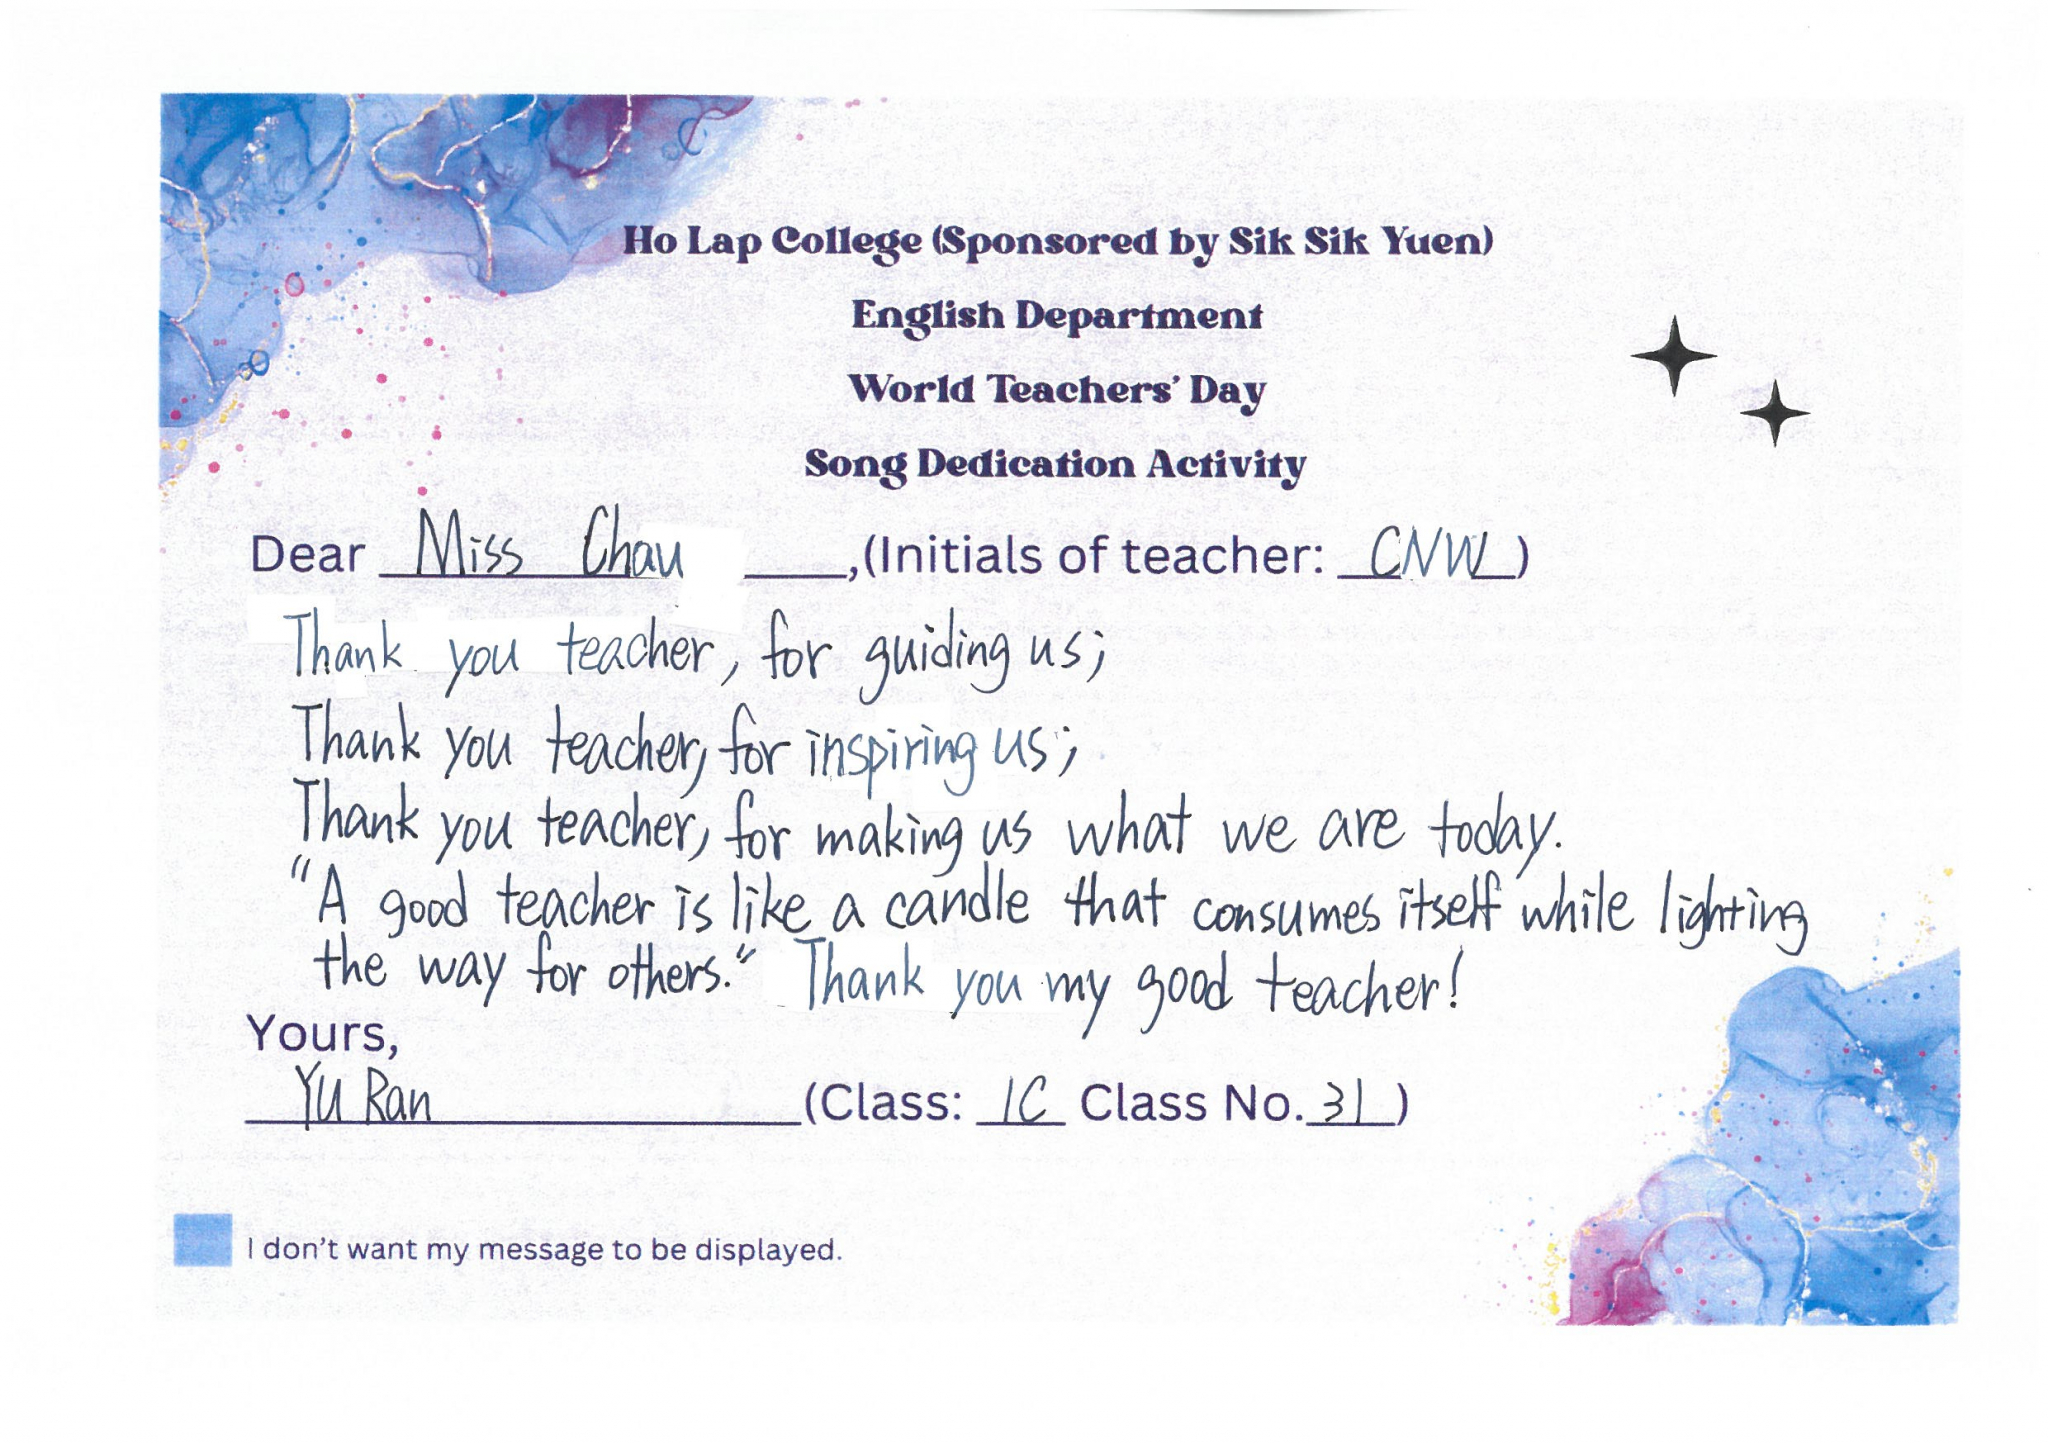 Ho Lap College (Sponsored by Sik Sik Yuen)
English Department
World Teachers' Day
Song Dedication Activity
Dear Miss Chau ,(Initials of teacher: CNW)
Thank you teacher, for guiding us;
Thank you teacher, for inspiring us;
Thank you teacher, for making us what we are today.
"A good teacher is like a candle that consumes itself while lighting
the way for others." Thank you my good teacher!
Yours,
Yu Ran (Class: 1C Class No. 31)
I don't want my message to be displayed.